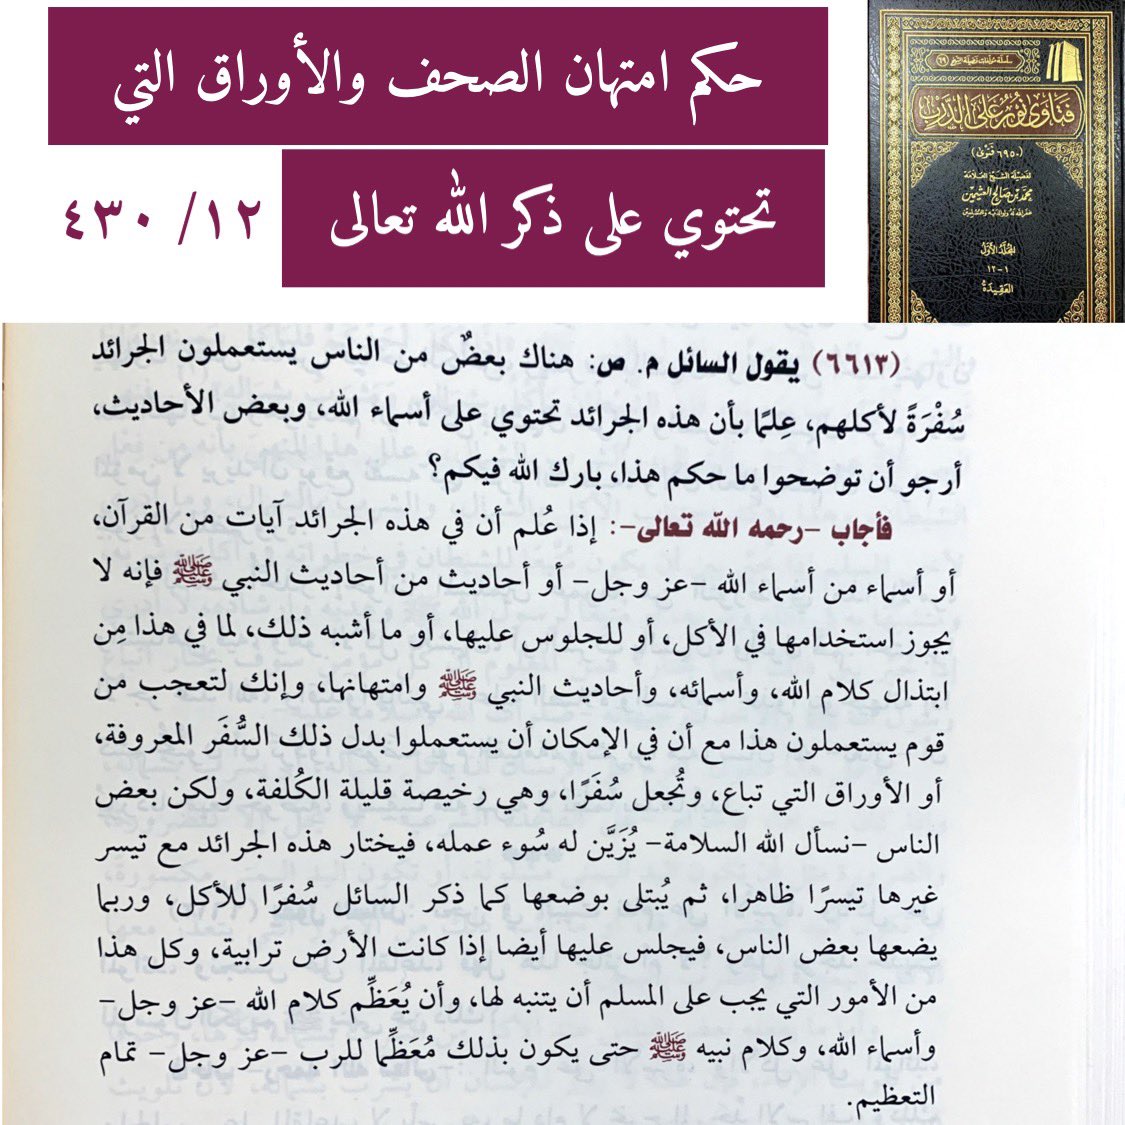 حكم امتهان الصحف والأوراق التي
تحتوي على ذكر الله تعالى ١٢/ ٤٣٠
فتاوى نور على الدرب
(٦٩٥٠ فتوى)
لفضيلة الشيخ العلامة
محمد بن صالح العثيمين
غفر الله له ولوالديه وللمسلمين
المجلد الأول
١-١٢
العقيدة
(٦٦١٣) يقول السائل م. ص: هناك بعضٌ من الناس يستعملون الجرائد
سُفْرَةً لأكلهم، عِلمًا بأن هذه الجرائد تحتوي على أسماء الله، وبعض الأحاديث،
أرجو أن توضحوا ما حكم هذا، بارك الله فيكم؟
فأجاب -رحمه الله تعالى-: إذا عُلم أن في هذه الجرائد آيات من القرآن،
أو أسماء من أسماء الله -عز وجل- أو أحاديث من أحاديث النبي ﷺ فإنه لا
يجوز استخدامها في الأكل، أو للجلوس عليها، أو ما أشبه ذلك، لما في هذا مِن
ابتذال كلام الله، وأسمائه، وأحاديث النبي ﷺ وامتهانها، وإنك لتعجب من
قوم يستعملون هذا مع أن في الإمكان أن يستعملوا بدل ذلك السُّفَر المعروفة،
أو الأوراق التي تباع، وتُجعل سُفَرًا، وهي رخيصة قليلة الكُلفة، ولكن بعض
الناس -نسأل الله السلامة- يُزَيَّن له سُوء عمله، فيختار هذه الجرائد مع تيسر
غيرها تيسرًا ظاهرا، ثم يُبتلى بوضعها كما ذكر السائل سُفرًا للأكل، وربما
يضعها بعض الناس، فيجلس عليها أيضا إذا كانت الأرض ترابية، وكل هذا
من الأمور التي يجب على المسلم أن يتنبه لها، وأن يُعَظِّم كلام الله -عز وجل-
وأسماء الله، وكلام نبيه ﷺ حتى يكون بذلك مُعَظِّما للرب -عز وجل- تمام
التعظيم.